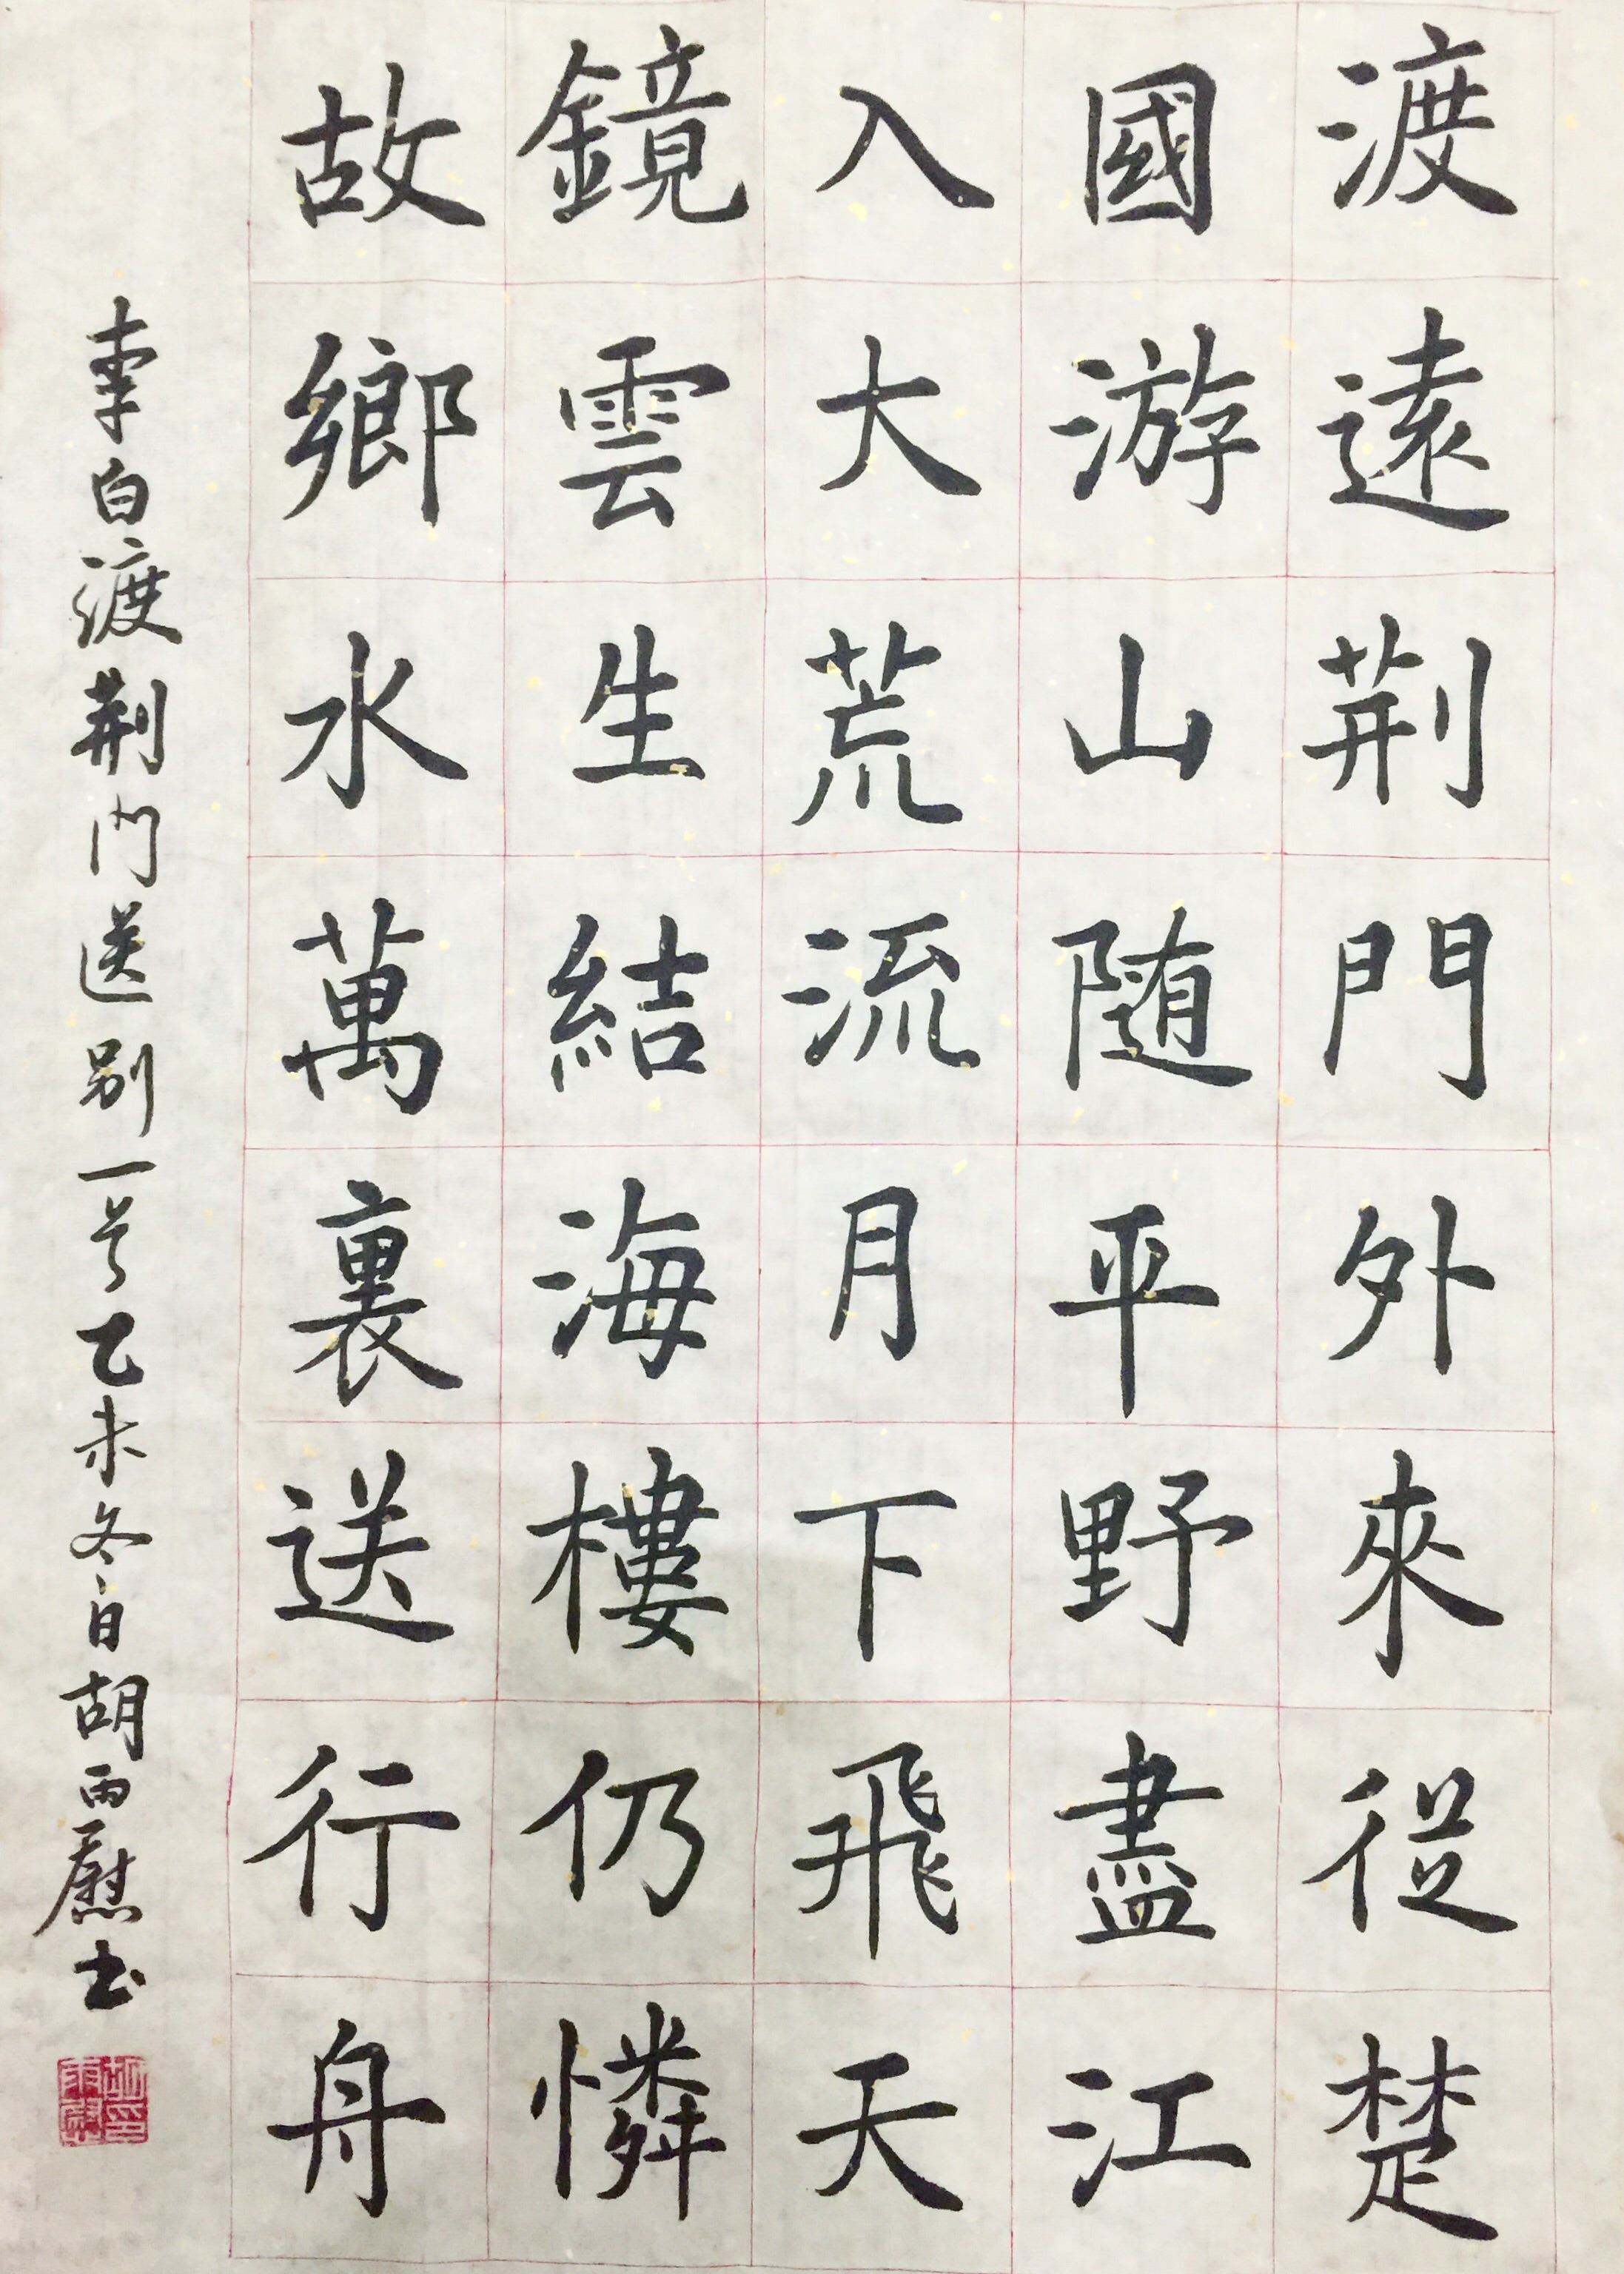 渡遠荆門外來從楚
國游山随平野盡江
入大荒流月下飛天
鏡雲生結海樓仍憐
故鄉水萬裏送行舟
李白渡荆門送别一首乙未冬日胡雨慰书